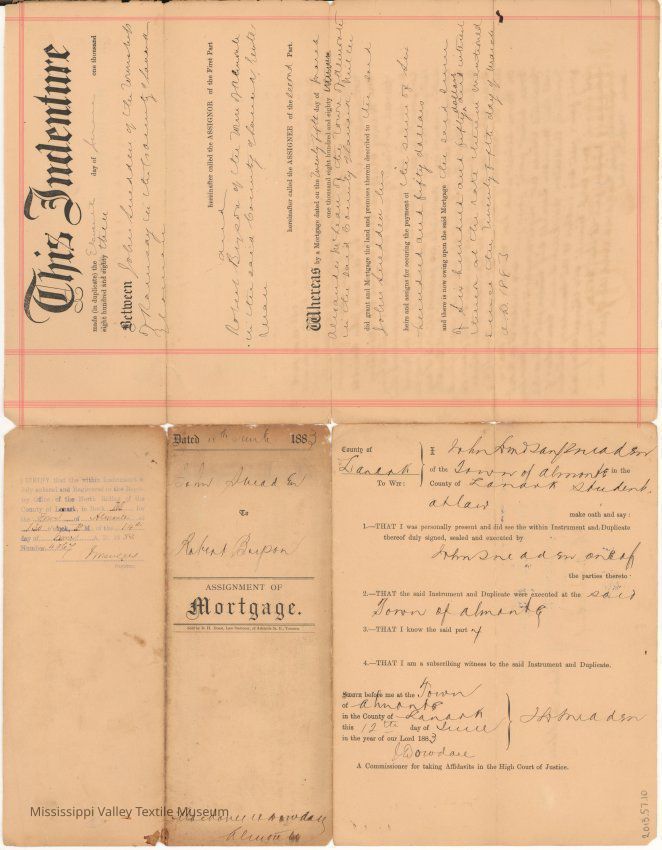 This Indenture
made (in duplicate) the Eleventh day of June one thousand
eight hundred and eighty three
Between John Snedden of the Township
of Ramsay in the County of Lanark
hereinafter called the ASSIGNOR of the First Part
and
Robert of the Town of Almonte
in the said County of Lanark
hereinafter called the ASSIGNEE of the Second Part.
Whereas by a Mortgage dated on the Twenty fifth day of March
one thousand eight hundred and eighty
Alexander of the Town of Almonte
in the said County of Lanark
did grant and Mortgage the land and premises therein described to the said
John Snedden his
heirs and assigns for securing the payment of the sum of Six
hundred and fifty dollars
and there is now owing upon the said Mortgage the said sum
of Six hundred and fifty dollars and interest
thereon at the rate therein mentioned
since the Twenty fifth day of March
A.D. 1883
I CERTIFY that the within Instrument is
duly entered and Registered in the Registry
Office of the North Riding of the
County of Lanark, in Book
for the Town of Almonte at
o'clock, P.M. of the 14th
day of June A.D. 1883
Number 4867
Registrar.
Dated 11th June 1883
John Sneaden
To
Robert
ASSIGNMENT OF
Mortgage.
Almonte
County of
Lanark
To Wit:
I John Sneaden
of the Town of Almonte in the
County of Lanark Student
at law
make oath and say:
1.—THAT I was personally present and did see the within Instrument and Duplicate
thereof duly signed, sealed and executed by
John Sneaden one of
the parties thereto
2.—THAT the said Instrument and Duplicate were executed at the said
Town of Almonte
3.—THAT I know the said party
4.—THAT I am a subscribing witness to the said Instrument and Duplicate.
SWORN before me at the Town
of Almonte
in the County of Lanark
this 12th day of June
in the year of our Lord 1883
Sneaden
J Dowdall
A Commissioner for taking Affidavits in the High Court of Justice.
Mississippi Valley Textile Museum
2013.57.10